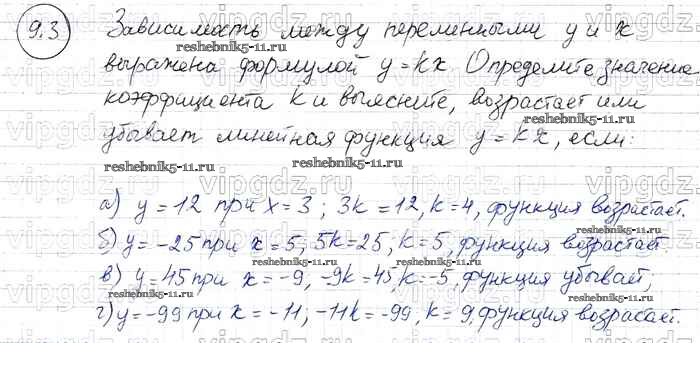 9.3 Зависимость между переменными y и x
reshebnik5-11.ru
выражена формулой y = kx. Определите значение
коэффициента k и выясните, возрастает или
убывает линейная функция y = kx, если:
reshebnik5-11.ru reshebnik5-11.ru
а) y = 12 при x = 3; 3k = 12, k = 4, функция возрастает.
б) y = -25 при x = 5; 5k = 25; k = 5, функция возрастает.
в) y = 45 при x = -9, -9k = 45, k = -5, функция убывает,
reshebnik5-11.ru reshebnik5-11.ru
г) y = -99 при x = -11; -11k = -99, k = 9, функция возрастает.